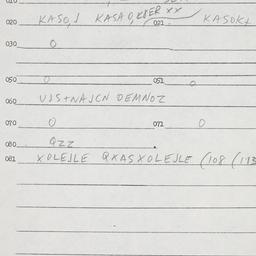 010
020 KASO,J KASAO,KBER XX 021 KASOKL
030 0
050 0 051 0
060 UJS+NAJCN OEMNOZ
070 0 071 0
080 QZZ
081 XOLEJLE QXASXOLEJLE (108 (113